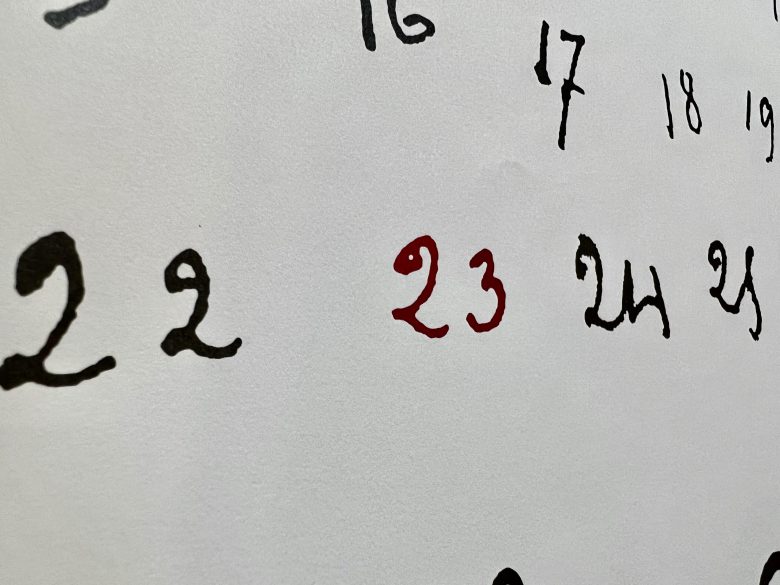 16 17 18 19
22 23 24 25